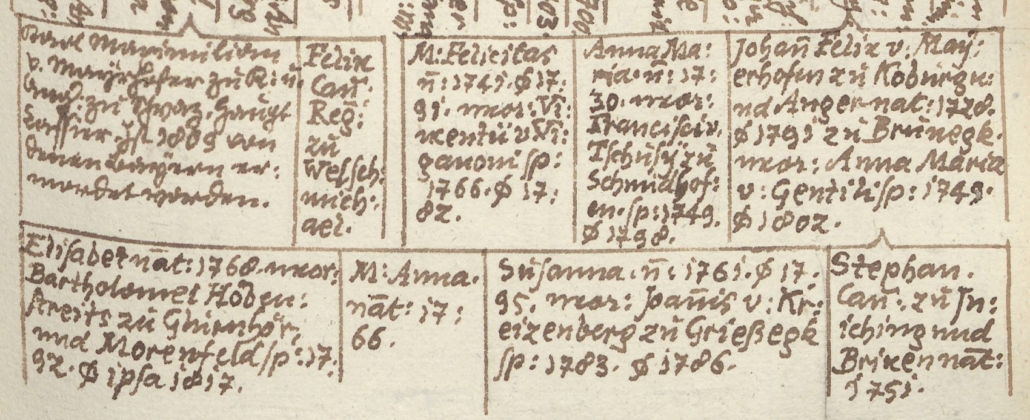 Karl Maximilian
v. Mayrhofer zu K: u:
Ang: zu Schwaz. Haupt
Cassier ist 1809 von
denen Bayern er:
mordet worden.
Felix
Can:
Reg:
zu
Welsch:
mich:
ael.
M: Felicitas
n̄: 1747. ϕ 17:
91. mar: Vi:
centii v Vi:
ganoni sp:
1766. ϕ 17:
82.
Anna Ma:
ria n̄: 17:
30. mar:
Francisci v.
Tschusÿ zu
Schmidhof:
en. sp: 1749.
ϕ 1798.
Johan̄ Felix v: Maÿ:
erhofen zu Koburg u:
nd Anger nat: 1728.
ϕ 1791 zu Brunegk.
mar: Anna Maria
v: Gentili sp: 1749.
ϕ 1802.
Elisabet nat: 1768. mar:
Bartholomei Höben:
streits zu
und Morenfeld sp: 17:
92. ϕ ipsa 1817.
M: Anna.
nat: 17:
66.
Susanna. n̄: 1761. ϕ 17.
95. mar: Joan̄is v: Kr:
eizenberg zu Grießegk
sp: 1783. ϕ 1786.
Stephan.
Can̄. zu In:
iching und
Brixen nat:
1751.